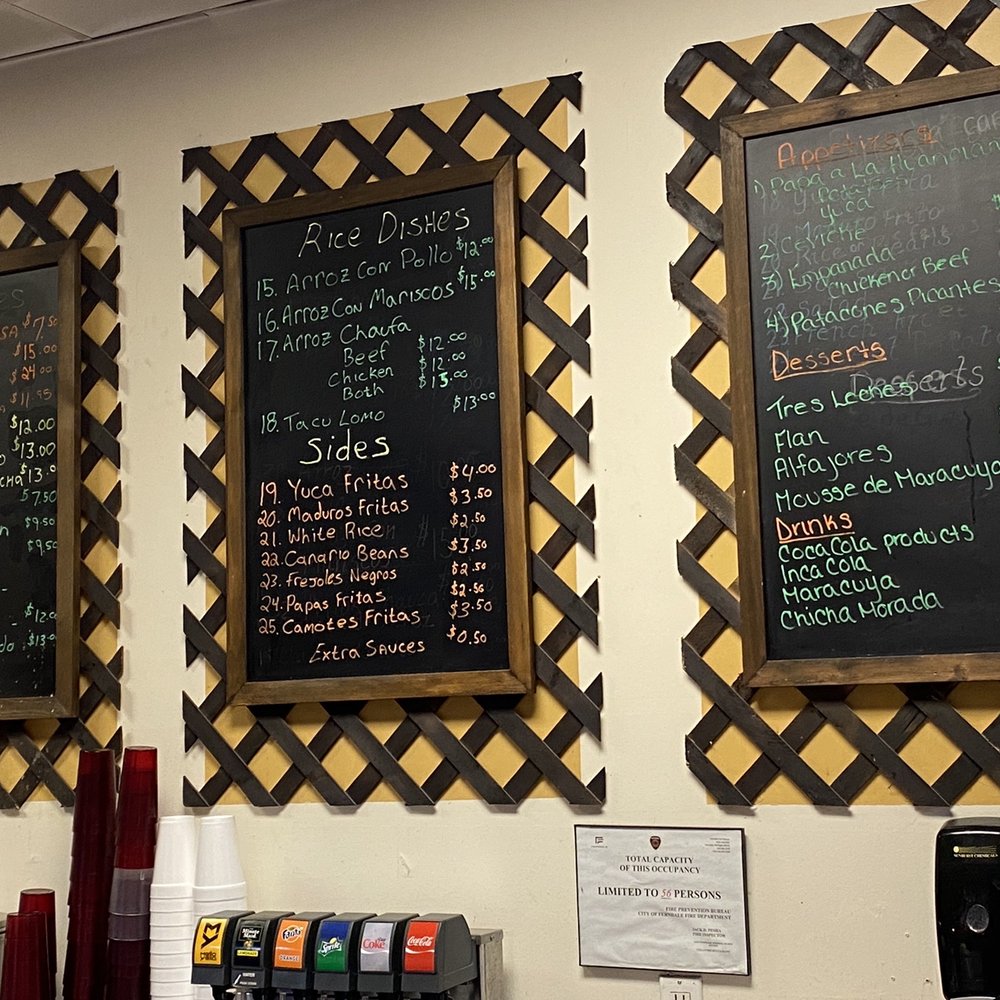 $7.50
$15.00
$24.00
$11.95
$12.00
$13.00
$13.00
$7.50
$9.50
$9.50
$12.00
$13.00
Rice Dishes
15. Arroz Con Pollo $12.00
16. Arroz Con Mariscos $15.00
17. Arroz Chaufa
Beef $12.00
Chicken $12.00
Both $15.00
18. Tacu Lomo $13.00
Sides
19. Yuca Fritas $4.00
20. Maduros Fritas $3.50
21. White Rice $2.50
22. Canario Beans $3.50
23. Frejoles Negros $2.50
24. Papas Fritas $2.50
25. Camotes Fritas $3.50
Extra Sauces $0.50
Appetizers
1) Papa a La Huancian
Yuca
2) Ceviche
3) Empanada
Chicken or Beef
4) Patacones Picantes
Desserts
Desserts
Tres Leches
Flan
Alfajores
Mousse de Maracuya
Drinks
Coca Cola products
Inca Cola
Maracuya
Chicha Morada
TOTAL CAPACITY
OF THIS OCCUPANCY
LIMITED TO 56 PERSONS
FIRE PREVENTION BUREAU
CITY OF FERNDALE FIRE DEPARTMENT
FIRE INSPECTOR
Minute Maid
LEMONADE
Fanta
ORANGE
Sprite
Diet Coke
Coca-Cola
WATER